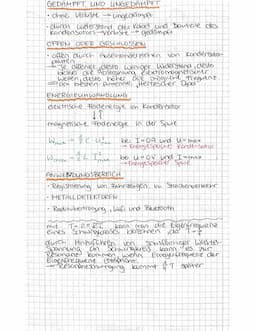 GEDÄMPFT UND UNGEDÄMPFT
- ohne Verluste → ungedämpft
- durch Widerstand der Kabel und Bauteile des Kondensators → Verluste → gedämpft
OFFEN ODER GESCHLOSSEN
- offen durch Auseinanderziehen von Kondensator-
platten
→ je offener, desto weniger Widerstand, desto
besser die Aussendung elektromagnetischer
Wellen, desto höher die mögliche Frequenz
→ am besten Antenne, "Hertzscher Dipol"
ENERGIEUMWANDLUNG
elektrische Feldenergie im Kondensator
↓
magnetische Feldenergie in der Spule
W = ½ C U² max bei I = 0A und U = max
→ Energiespeicher Kondensator
W = ½ L I² max bei U = 0V und I = max
→ Energiespeicher Spule
ANWENDUNGSBEREICH
- Registrierung von Fahrzeugen im Straßenverkehr
- METALLDETEKTOREN
- Radioübertragung, Wifi und Bluetooth
mit kann man die Eigenfrequenz
eines Schwingkreises berechnen, da
durch Hinzuführen von Wechsel-
spannung an Schwingkreis kann es zur
Resonanz kommen, wenn Erregerfrequenz der
Eigenfrequenz
→ Resonanzschwingung kommt ¼ T später